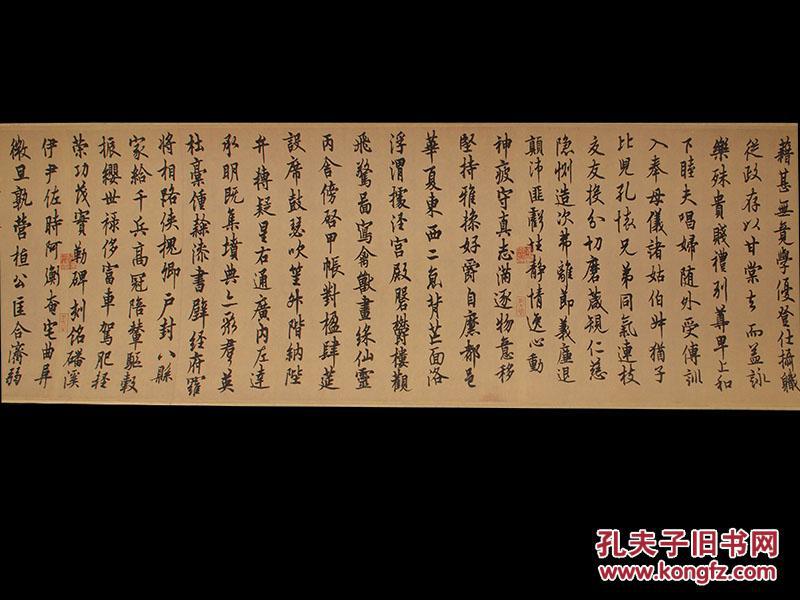 藉甚無竟學優登仕攝職
從政存以甘棠去而益詠
樂殊貴賤禮別尊卑上和
下睦夫唱婦隨外受傅訓
入奉母儀諸姑伯叔猶子
比兒孔懷兄弟同氣連枝
交友投分切磨箴規仁慈
隱惻造次弗離節義廉退
顛沛匪虧性靜情逸心動
神疲守真志滿逐物意移
堅持雅操好爵自縻都邑
華夏東西二京背芒面洛
浮渭據涇宮殿磐鬱樓觀
飛驚啚寫禽獸畫綵仙靈
丙舍傍啓甲帳對楹肆筵
設席鼓瑟吹笙升階納陛
弁轉疑星右通廣內左達
承明既集墳典亦聚群英
杜稾鍾隸漆書壁經府羅
將相路俠槐卿戶封八縣
家給千兵高冠陪輦驅轂
振纓世祿侈富車駕肥輕
策功茂實勒碑刻銘磻溪
伊尹佐時阿衡奄宅曲阜
微旦孰營桓公匡合濟弱
孔夫子旧书网
kongfz.com